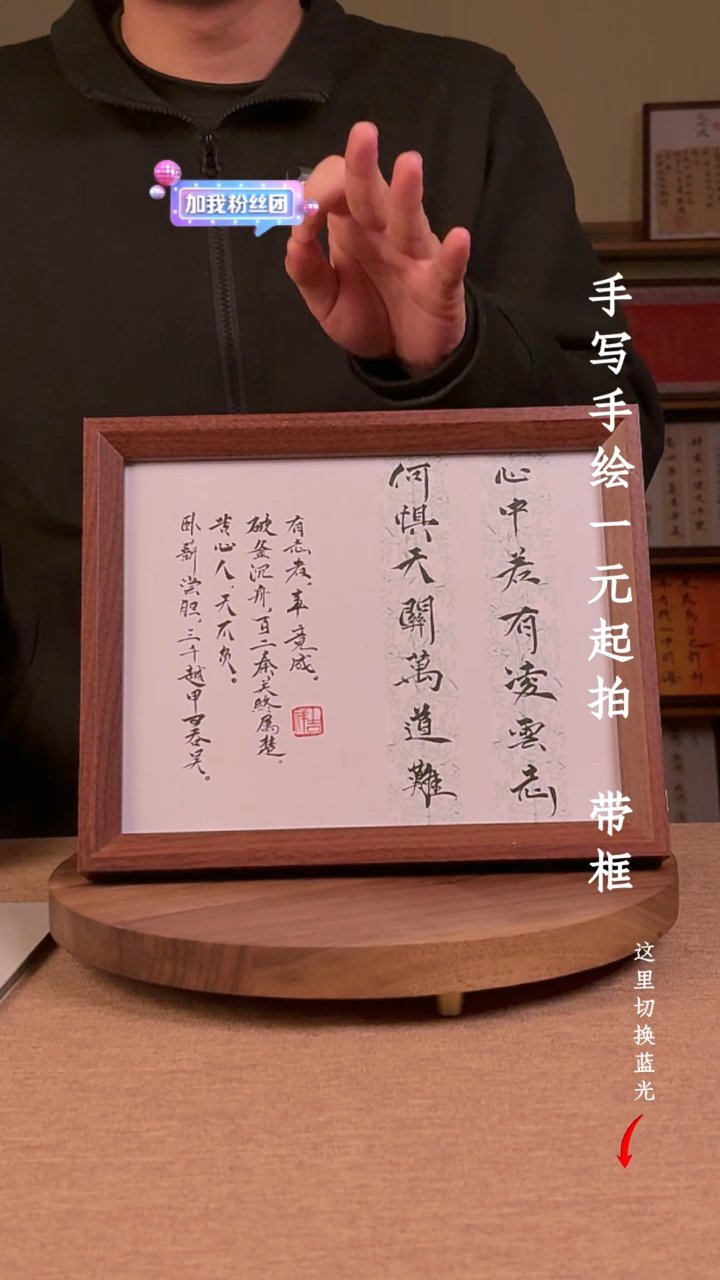 加我粉丝团
手写手绘一元起拍 带框
心中若有凌雲志
何惧天關萬道難
有志者、事竟成。
破釜沉舟,百二秦关终属楚。
苦心人,天不负。
卧薪尝胆,三千越甲可吞吴。
这里切换蓝光